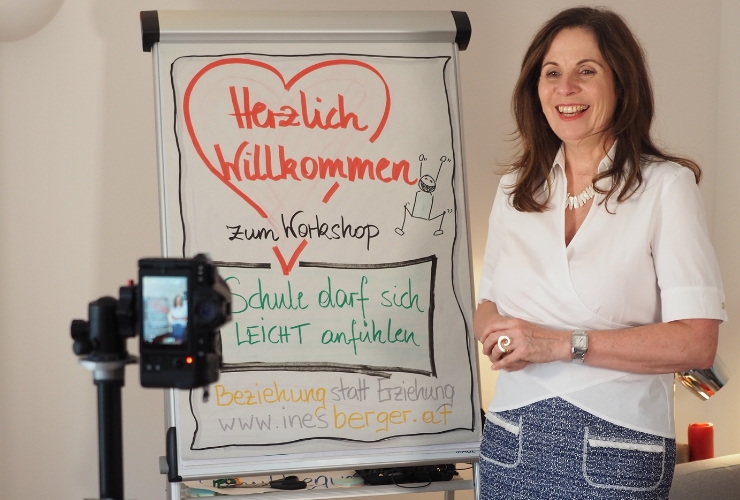 Herzlich
Willkommen
zum Workshop
Schule darf sich
LEICHT anfühlen
Beziehung statt Erziehung
www.inesberger.at